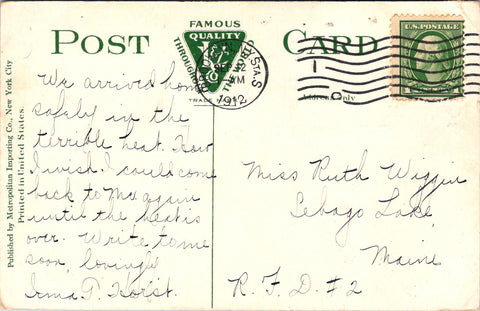 POST CARD
FAMOUS
QUALITY
THROUGHOUT THE WORLD
TRADE MARK
Address Only
U.S. POSTAGE
1912
Published by Metropolitan Importing Co., New York City
Printed in United States.
We arrived home
safely in the
terrible heat. How
I wish I could come
back to Me again
until the heat is
over. Write to me
soon, lovingly
Irma P. Horst.
Miss Ruth Wiggin
Sebago Lake,
Maine
R. F. D. #2